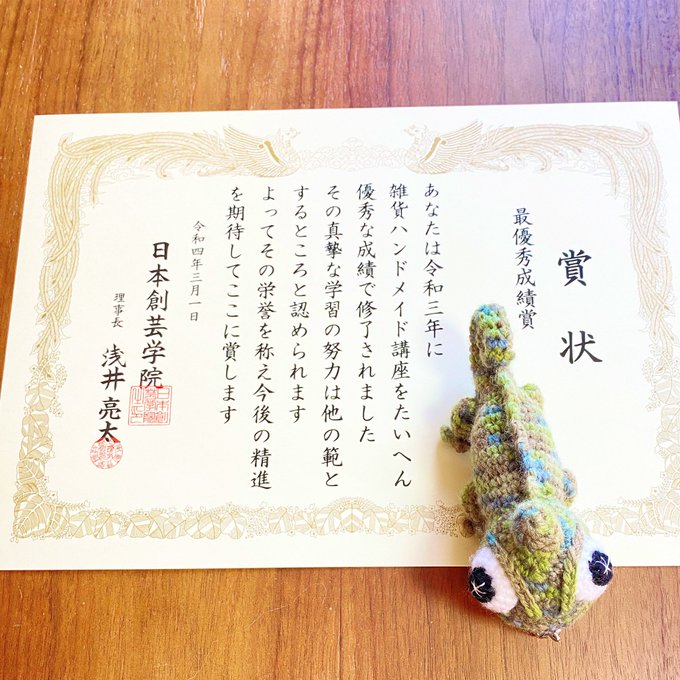 賞状
最優秀成績賞
あなたは令和三年に
雑貨ハンドメイド講座をたいへん
優秀な成績で修了されました
その真摯な学習の努力は他の範と
するところと認められます
よってその栄誉を称え今後の精進
を期待してここに賞します
令和四年三月一日
日本創芸学院
理事長
浅井亮太